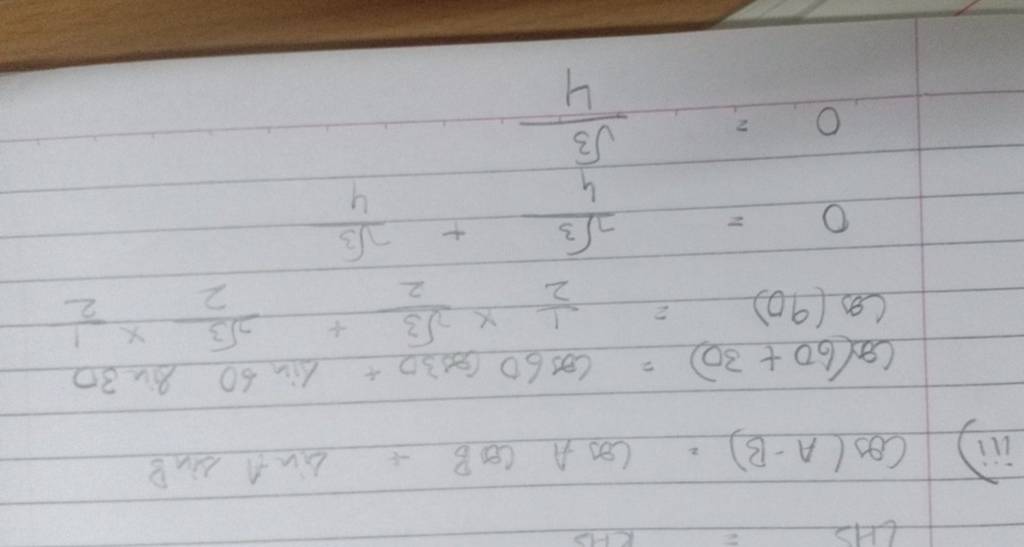 LHS = RHS
iii) Cos(A-B) = Cos A Cos B + Sin A Sin B
Cos(60 + 30) = Cos 60 Cos 30 + Sin 60 Sin 30
Cos(90) = 1/2 × √3/2 + √3/2 × 1/2
0 = √3/4 + √3/4
0 = √3/4